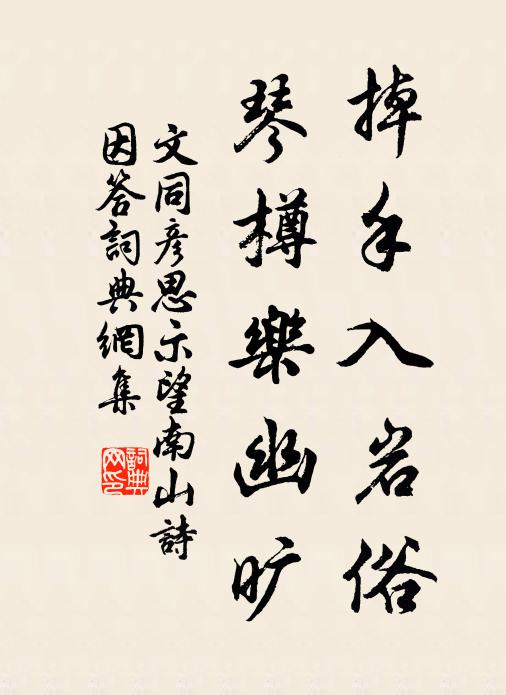 掉手入岩俗
琴樽樂幽旷
文同彦思示望南山詩
因答詞典網集
詞典
网印